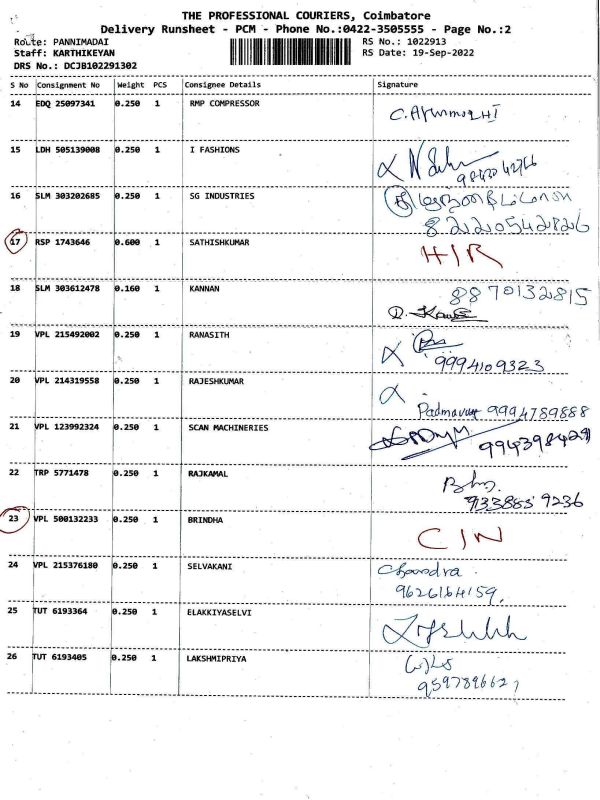 THE PROFESSIONAL COURIERS, Coimbatore
Delivery Runsheet - PCM - Phone No.:0422-3505555 - Page No.:2
Route: PANNIMADAI RS No.: 1022913
Staff: KARTHIKEYAN RS Date: 19-Sep-2022
DRS No.: DCJB102291302
S No Consignment No Weight PCS Consignee Details Signature
14 EDQ 25097341 0.250 1 RMP COMPRESSOR
15 LDH 505139008 0.250 1 I FASHIONS
16 SLM 303202685 0.250 1 SG INDUSTRIES
8220542826
17 RSP 1743646 0.600 1 SATHISHKUMAR H/R
18 SLM 303612478 0.160 1 KANNAN 8870132815
19 VPL 215492002 0.250 1 RANASITH
9994109323
20 VPL 214319558 0.250 1 RAJESHKUMAR
9994789888
21 VPL 123992324 0.250 1 SCAN MACHINERIES
22 TRP 5771478 0.250 1 RAJKAMAL
23 VPL 500132233 0.250 1 BRINDHA
24 VPL 215376180 0.250 1 SELVAKANI Chandra
9626164159
25 TUT 6193364 0.250 1 ELAKKIYASELVI
26 TUT 6193405 0.250 1 LAKSHMIPRIYA